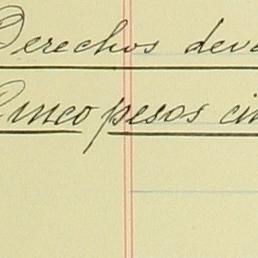 Derechos deve
Cinco pesos cin